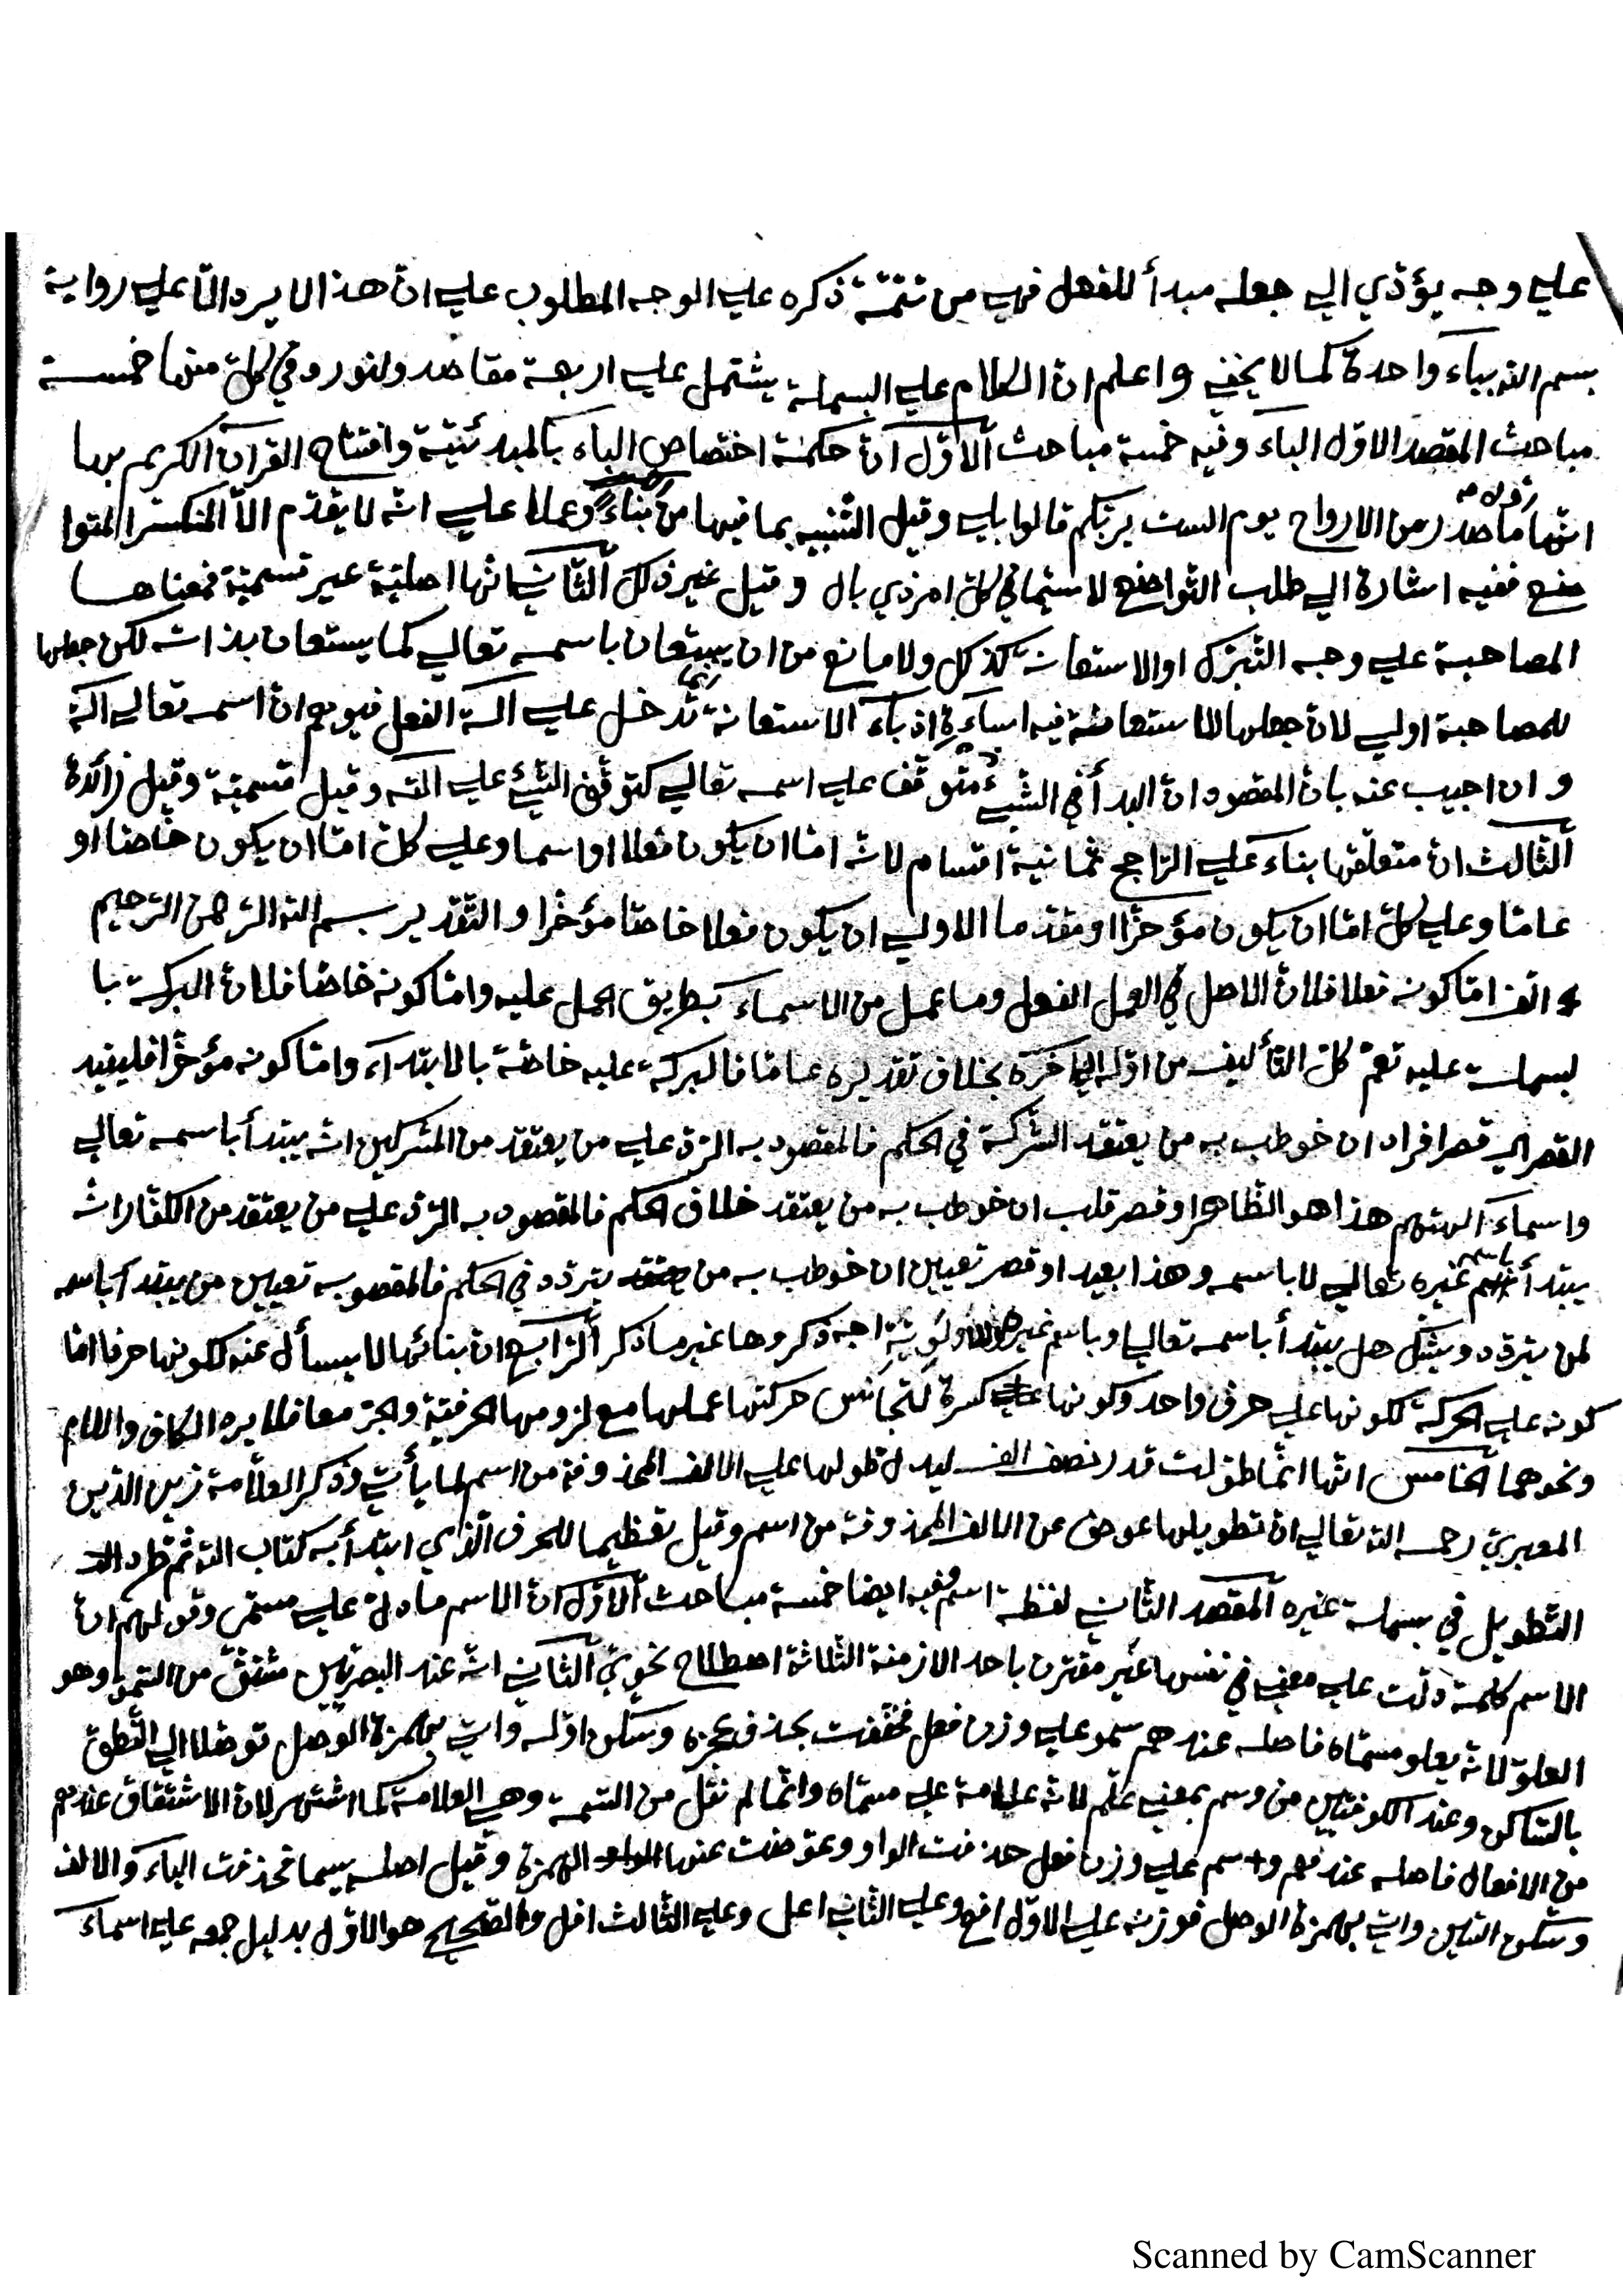 علي وجه يؤدّي الي جعله مبدأ للفعل فهي من تتمّة ذكره علي الوجه المطلوب علي انّ هذا لا يرد الّا علي رواية
بسم اللّه بياء واحدة كما لا يخفي واعلم انّ الكلام علي البسملة يشتمل علي اربعة مقاصد ولنورد في كلّ منها خمسة
مباحث المقصد الاوّل الباء وفيه خمسة مباحث الاوّل انّ حكمة اختصاص الباء بالمبدئيّة وافتتاح القرآن الكريم بها
انّها اوّل ما صدر من الارواح يوم الست بربّكم قالوا بلي وقيل التّنبيه بما فيها من بناءً وعملا علي انّه لا يقدّم الّا المنكسر المتوا
ضع ففيه اشارة الي طلب التّواضع لا سيّما في كلّ امر ذي بال وقيل غير ذلك الثّاني انّها اصليّة غير قسميّة فمعناها
المصاحبة علي وجه التّبرّك او الاستعانة كذلك ولا مانع من ان يستعان باسمه تعالي كما يستعان بذاته لكن جعلها
للمصاحبة اولي لانّ جعلها للاستعانة فيه اساءة اذ باء الاستعانة تدخل علي آلة الفعل فيوهم انّ اسمه تعالي آلة
وان اجيب عنه بانّ المقصود انّ البدأ في الشّيء متوقّف علي اسمه تعالي كتوقّف الشّيء علي آلته وقيل قسميّة وقيل زائدة
الثّالث انّ متعلّقها بناء علي الرّاجح ثمانية اقسام لانّه امّا ان يكون فعلا او اسما وعلي كلّ امّا ان يكون خاصّا او
عامّا وعلي كلّ امّا ان يكون مؤخّرا او مقدّما الاولي ان يكون فعلا خاصّا مؤخّرا والتّقدير بسم اللّه الرّحمن الرّحيم
امّا كونه فعلا فلانّ الاصل في العمل الفعل وما عمل من الاسماء بطريق الحمل عليه وامّا كونه خاصّا فلانّ البركة با
لبسملة عليه تعمّ كلّ التّأليف من اوّله الي آخره بخلاف تقديره عامّا فالبركة عليه خاصّة بالابتداء وامّا كونه مؤخّرا فليفيد
القصر اي قصر افراد ان خوطب به من يعتقد الشّركة في الحكم فالمقصود به الرّدّ علي من يعتقد من المشركين انّه يبتدأ باسمه تعالي
واسماء آلهتهم هذا هو الظّاهر او قصر قلب ان خوطب به من يعتقد خلاف الحكم فالمقصود به الرّدّ علي من يعتقد من الكفّار انّه
يبتدأ باسم غيره تعالي لا باسمه وهذا بعيد او قصر تعيين ان خوطب به من يتردّد في الحكم فالمقصو به تعيين من يبتدأ باسمه
لمن يتردّد ويشكّ هل يبتدأ باسمه تعالي او باسم غيره ولاولويّته اوجه ذكروها غير ما ذكر الرّابع انّ بنائها لا يسأل عنه لكونها حرفا امّا
كونه علي الحركة لكونها علي حرف واحد وكونها كسرة لتجانس حركتها عملها مع لزومها الحرفيّة والجرّ معا فلا يرد الكاف واللام
ونحوهما الخامس انّها انّما طوّلت قدر نصف الف ليدلّ طولها علي الالف المحذوفة من اسم لما يأتي وذكر العلّامة زين الدّين
المعبري رحمه اللّه تعالي انّ تطويلها عوض عن الالف المحذوفة من اسم وقيل تعظيما للحرف الّذي ابتدأ به كتاب اللّه ثمّ طرد
التّطويل في بسملة غيره المقصد الثّاني لفظة اسم وفيه ايضا خمسة مباحث الاوّل انّ الاسم ما دلّ علي مسمّي وقولهم انّ
الاسم كلمة دلّت علي معني في نفسها غير مقترن باحد الازمنة الثّلاثة اصطلاح نحويّ الثّاني انّه عند البصريّين مشتقّ من السّموّ وهو
العلوّ لانّه يعلو مسمّاه فاصله عندهم سمو علي وزن فعل فخفّفت بحذف عجزه وسكّن اوّله واتي بهمزة الوصل توصّلا الي النّطق
بالسّاكن وعند الكوفيّين من وسم بمعني علّم لانّه علامة علي مسمّاه وانّما لم نقل من السّمة وهي العلامة كما اشتهر لانّ الاشتقاق عندهم
من الافعال فاصله عندهم وسم علي وزن فعل حذفت الواو وعوّضت عنها الهمزة وقيل اصله سيما فحذفت الياء والالف
وسكّن السّين واتي بهمزة الوصل فوزنه علي الاوّل افع وعلي الثّاني اعل وعلي الثّالث افل والصّحيح هو الاوّل بدليل جمعه علي اسماء
Scanned by CamScanner